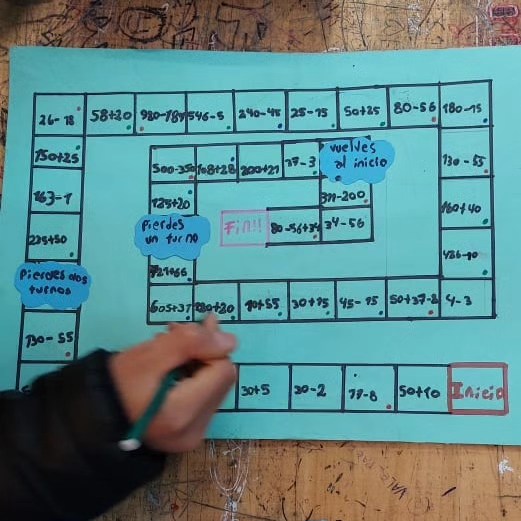 26-18
58+20
980-187
546-5
240-45
25-15
50+25
80-56
180-15
150+25
500-350
108+28
200+21
37-3
vuelves
al inicio
130-55
163-1
125+20
311-200
160+40
225+50
Pierdes
un turno
Fin!!
80-56+34
34-56
486-10
Pierdes dos
turnos
721+66
605+37
180+20
10+55
30+15
45-15
50+37-8
4-3
130-55
30+5
30-2
77-8
50+10
Inicio